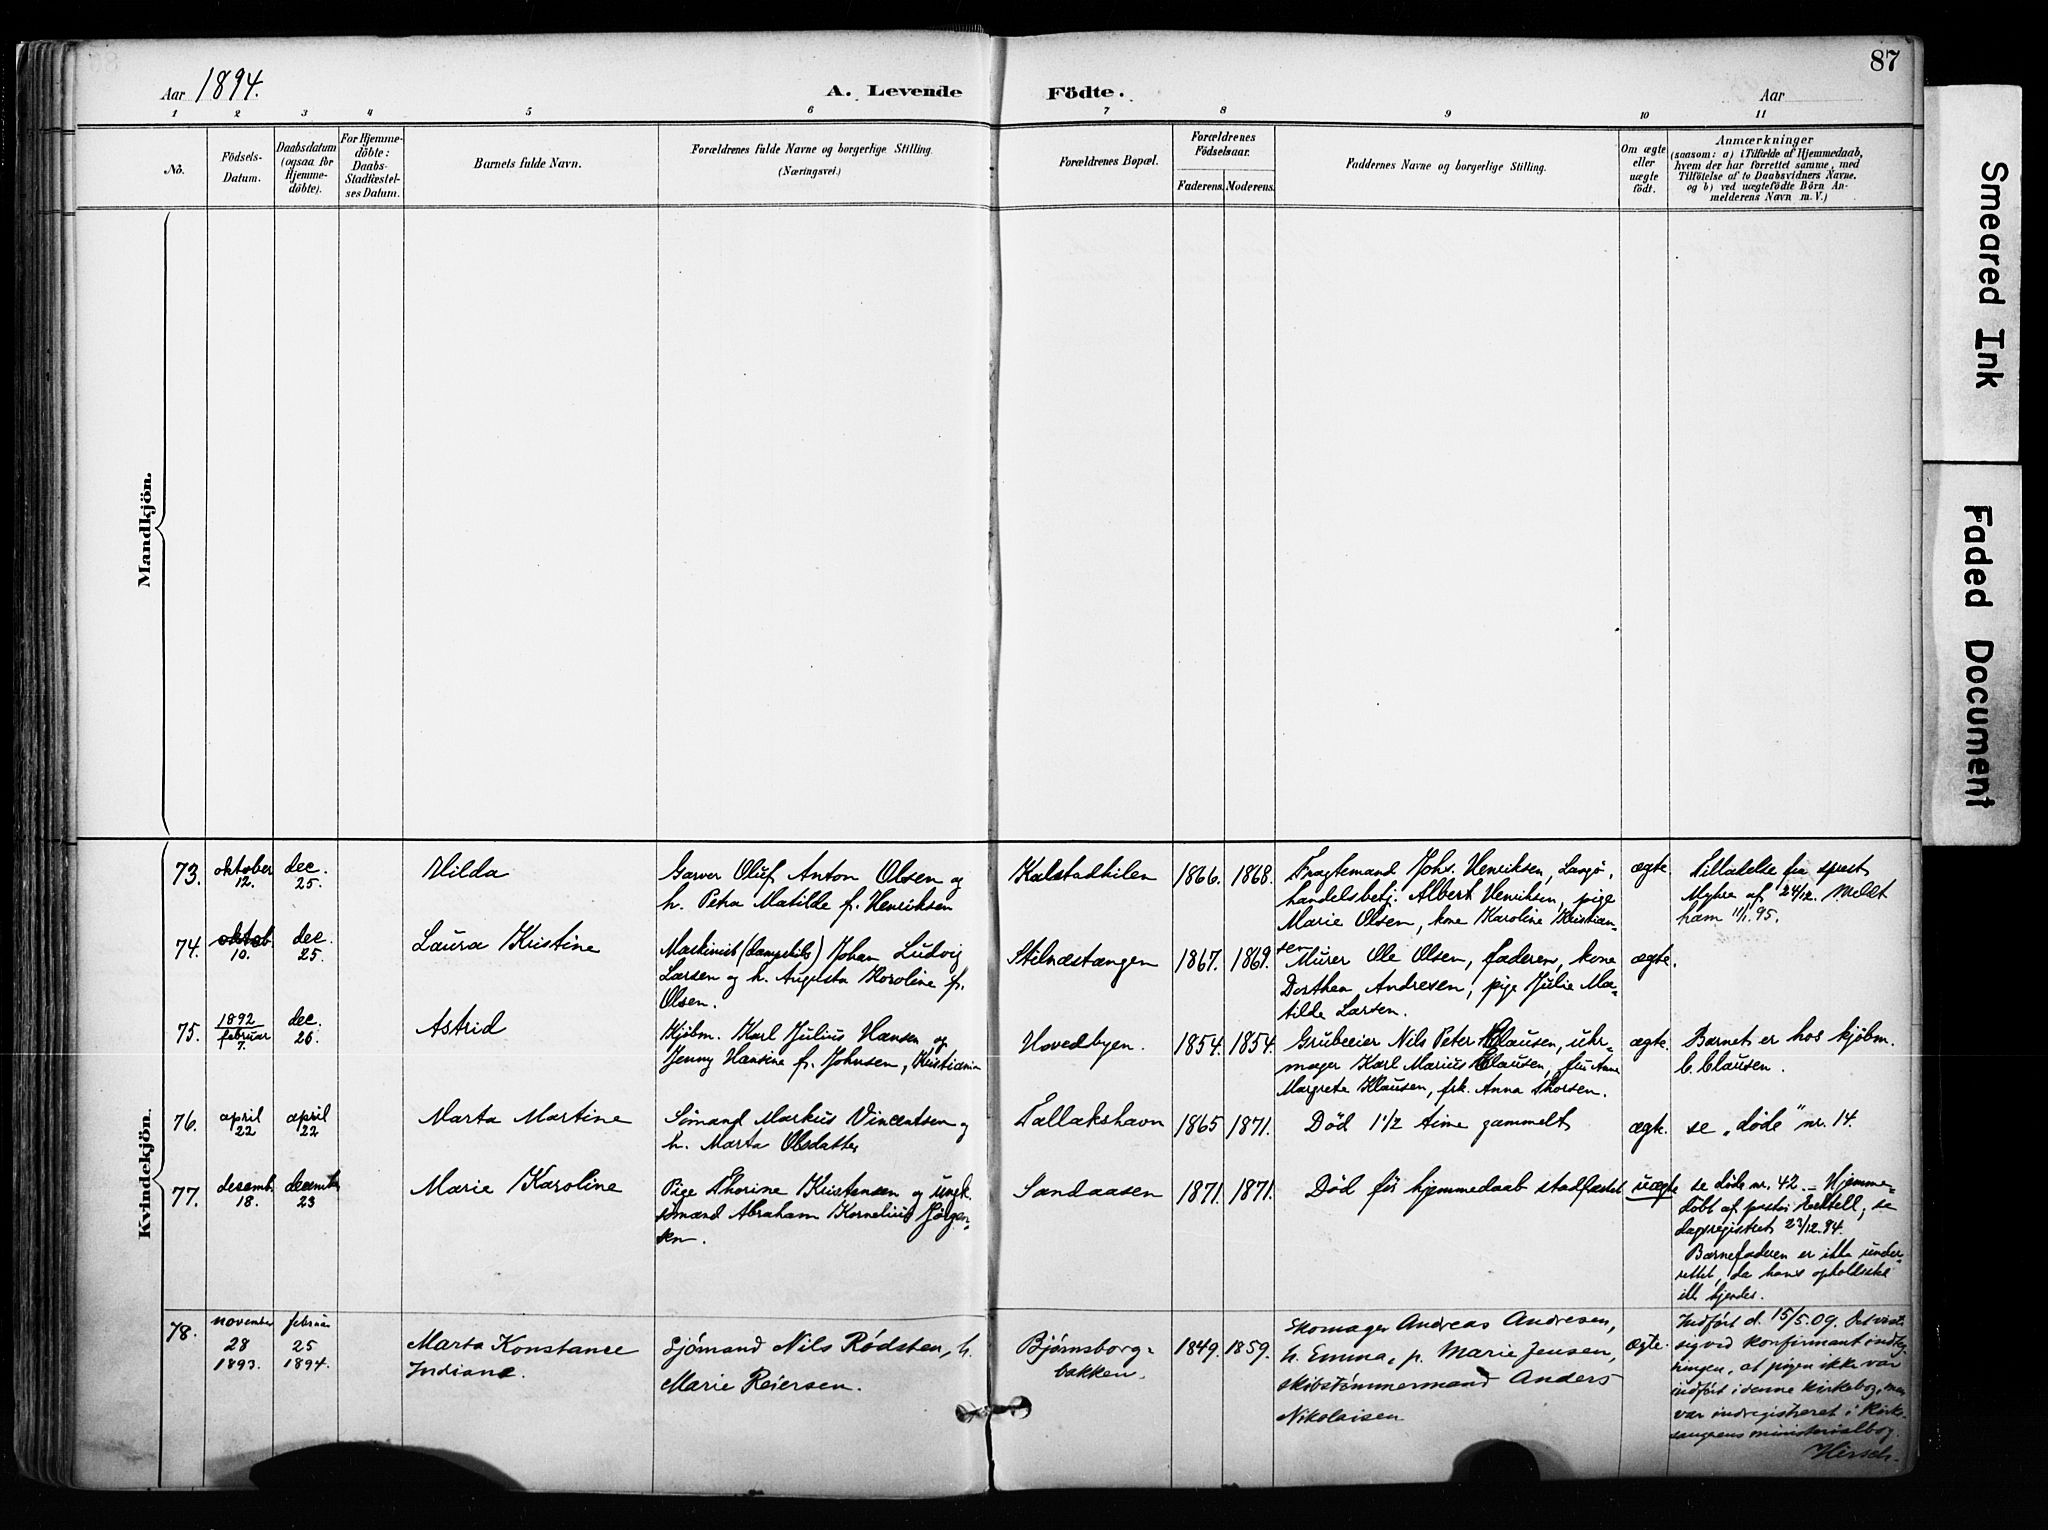 87
Aar 1894.
A. Levende Födte.
Aar
1 2 3 4 5 6 7 8 9 10 11
No.
Födsels-
Datum.
Daabsdatum
(ogsaa for
Hjemme-
döbte).
For Hjemme-
döbte:
Daabs-
Stadfæstel-
ses Datum.
Barnets fulde Navn.
Forældrenes fulde Navne og borgerlige Stilling.
(Næringsvei.)
Forældrenes Bopæl.
Forældrenes
Födselsaar.
Faderens. Moderens.
Faddernes Navne og borgerlige Stilling.
Om ægte
eller
uægte
födt.
Anmærkninger
(saasom: a) i Tilfælde af Hjemmedaab,
hvem der har forrettet samme, med
Tilföielse af to Daabsvidners Navne.
og b) ved uægtefödte Börn An-
melderens Navn m. V.)
Mandkjön.
Kvindekjön.
73.
oktober
12.
dec.
25.
Hilda
Garver Oluf Anton Olsen og
h. Petra Matilde f. Henriksen
Kalstadkilen
1866.
1868.
Fragtemand Johs. Henriksen, Langø,
handelsbetj. Albert Henriksen, pige
Marie Olsen, kone Karoline Kristian-
sen
ægte.
Tilladelse fra sprest
Myhre af 24/12. Meldt
ham 11/1. 95.
74.
oktob.
10.
dec.
25.
Laura Kristine
Maskinist (dampskibs) Johan Ludvig
Larsen og h. Augusta Karoline f.
Olsen.
Stilnæstangen
1867.
1869.
Murer Ole Olsen, faderen, kone
Dorthea Andresen, pige Julie Ma-
tilde Larsen.
ægte.
75.
1892
februar
7.
dec.
26.
Astrid
Kjøbm. Karl Julius Hansen og
Jenny Hansine f. Johnsen, Kristiania
Hovedbyen.
1854.
1854.
Grubeeier Nils Peter Clausen, uhr-
mager Karl Marius Clausen, fru Anne
Margrete Klausen, frk. Anna Thorsen.
ægte.
Barnet er hos kjøbm.
C. Clausen.
76.
april
22
april
22
Marta Martine
Sømand Markus Vincentsen og
h. Marta Olsdatter
Tallakshavn
1865
1871.
Død 1 1/2 time gammelt
ægte.
se "døde" nr. 14.
77.
desemb.
18.
desember
23
Marie Karoline
Pige Thorine Kristensen og ungk.
sømand Abraham Kornelius Jørgen-
sen.
Sandaasen
1871.
1871.
Død før hjemmedaab stadfæstet
uægte
se døde nr. 42. – Hjemme-
døbt af pastor; se
dagsregistret 23/12.94.
Barnefaderen er ikke under-
rettet, da hans opholdssted
ikke kjendes.
78.
november
28
1893.
februar
25
1894.
Marta Konstanse
Indiane.
Sjømand Nils Rødsten, h.
Marie Reiersen.
Bjørnsborg-
bakken.
1849.
1859.
Skomager Andreas Andresen,
h. Emma, p. Marie Jensen,
skibstømmermand Anders
Nikolaisen
ægte.
Indført d. 15/5.09. Det viste
sig ved konfirmant indteg-
ningen, at pigen ikke var
indført i denne kirkebog, men
var indregistreret i klok-
kerens ministerialbog.
Hirsch.
Smeared Ink
Faded Document